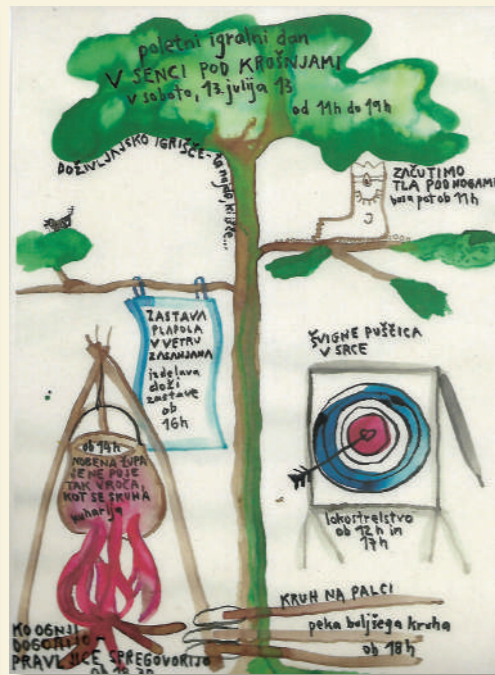 poletni igralni dan
V SENCI POD KROŠNJAMI
v soboto, 13. julija 13
od 11h do 19h
DOŽIVLJAJSKO IGRIŠČE – ta najde, ki išče...
ZAČUTIMO
TLA POD NOGAMI
bosa pot ob 11h
ZASTAVA
PLAPOLA
V VETRU
ZASANJANA
izdelava
doži
zastave
ob
16h
ŠVIGNE PUŠČICA
V SRCE
lokostrelstvo
ob 12h in
17h
ob 14h
NOBENA ŽUPA
SE NE POJE
TAK VROČA,
KOT SE SKUHA
kuharija
KRUH NA PALCI
peka boljšega kruha
ob 18h
KO OGNJI
DOGORIJO –
PRAVLJICE SPREGOVORIJO